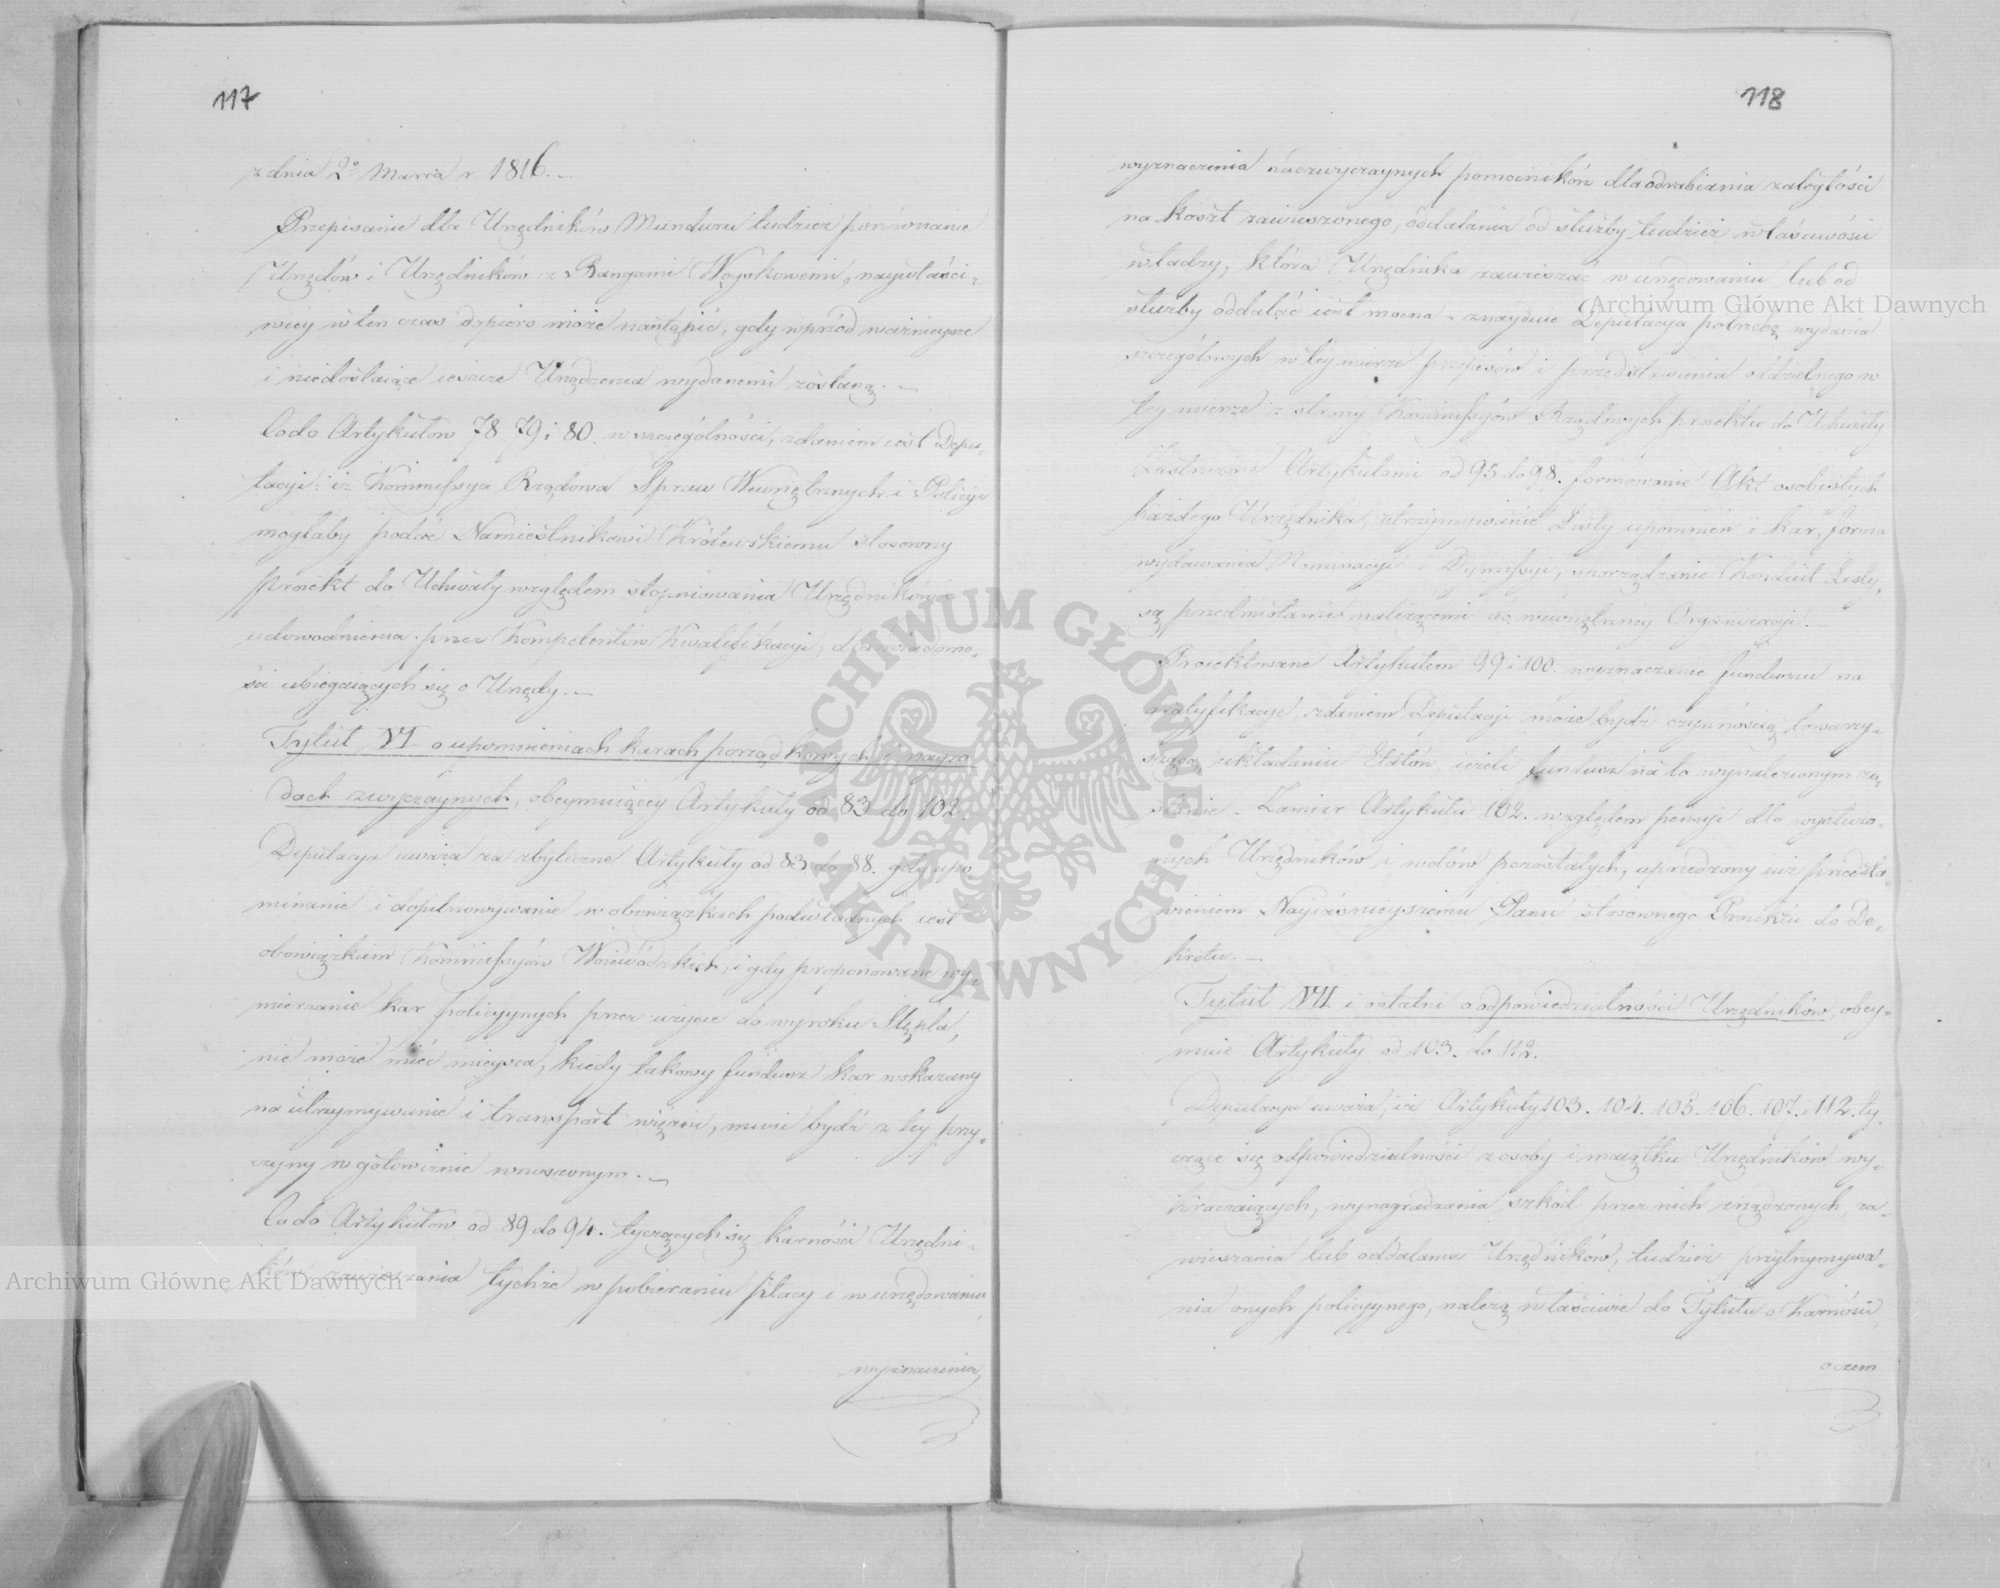 117
z dnia 2º Marca r. 1816.
Przepisanie dla Urzędników Munduru tudzież porównanie
Urzędów i Urzędników z Rangami Woyskowemi, naywłaści-
wiey w ten czas dopiero może nastąpić, gdy wprzód ważnieysze
i niedostaiące ieszcze Urządzenia wydanemi zostaną.
Codo Artykułów 78 79 i 80. w szczególności, zdaniem iest Depu-
tacyi: iż Kommissya Rządowa Spraw Wewnętrznych i Policyi
mogłaby podać Namiestnikowi Królewskiemu stosowny
Proiekt do Uchwały względem stopniowania Urzędników i
udowodnienia przez Kompetentów Kwalifikacyi, dla wiadomo-
ści ubiegaiących się o Urzędy.
Tytuł VI o upomnieniach karach porządkowych i nagro
dach zwyczaynych, obeymuiący Artykuły od 83 do 102.
Deputacya uważa za zbyteczne Artykuły od 83 do 88. gdy upo
minanie i dopilnowywanie w obowiązkach podwładnych iest
obowiązkiem Kommissyów Woiewódzkich, i gdy proponowane wy-
mierzanie kar policyjnych przez użycie do wyroku Stępla,
nie może mieć mieysca, kiedy takowy fundusz kar wskazany
na utrzymywanie i transport więźni, musi bydź z tey przy-
czyny w gotowiźnie wnoszonym.
Codo Artykułów od 89 do 94. tyczących się karności Urzędni-
ków, zawieszania tychże w pobieraniu płacy i w urzędowaniu,
wyznaczenia
118
wyznaczenia nadzwyczaynych pomocników dla odrabiania zaległości
na koszt zawieszonego, oddalania od służby tudzież właściwości
władzy, która Urzędnika zawieszać w urzędowaniu lub od
służby oddalać iest mocna - znayduie Deputacya potrzebę wydania
szczegółowych w tey mierze przepisów i przedstawienia oddzielnego w
tey mierze z strony Kommissyów Rządowych proiektu do Uchwały
Zastrzeżone Artykułami od 95 do 98. formowanie Akt osobistych
każdego Urzędnika, utrzymywanie Listy upomnień i kar, forma
wydawania Nominacyi i Dymissyi, sporządzanie Konduit Listy,
są przedmiotami należącemi do wewnętrzney Organizacyi.
Proiektowane Artykułem 99 i 100. wyznaczanie funduszu na
gratyfikacye, zdaniem Deputacyi może bydź czynnością towarzy-
szącą układaniu Etatów, ieżeli fundusz na to wynalezionym zo-
stanie. Zamiar Artykułu 102. względem pensyi dla wysłużo-
nych Urzędników i wdów pozostałych, uprzedzony iuż przedsta-
wieniem Nayiaśnieyszemu Panu stosownego Proiektu do De-
kretu.
Tytuł VII. i ostatni o odpowiedzialności Urzędników, obey-
muie Artykuły od 103. do 112.
Deputacya uważa, iż Artykuły 103. 104. 105. 106. 107. i 112. ty-
czące się odpowiedzialności z osoby i maiątku Urzędników wy-
kraczaiących, wynagradzania szkód przez nich zrządzonych, za-
wieszania lub oddalania Urzędników, tudzież przytrzymywa-
nia onych policyjnego, należą właściwie do Tytułu o Karności
o czem
Archiwum Główne Akt Dawnych
Archiwum Główne Akt Dawnych
ARCHIWUM GŁÓWNE
AKT DAWNYCH